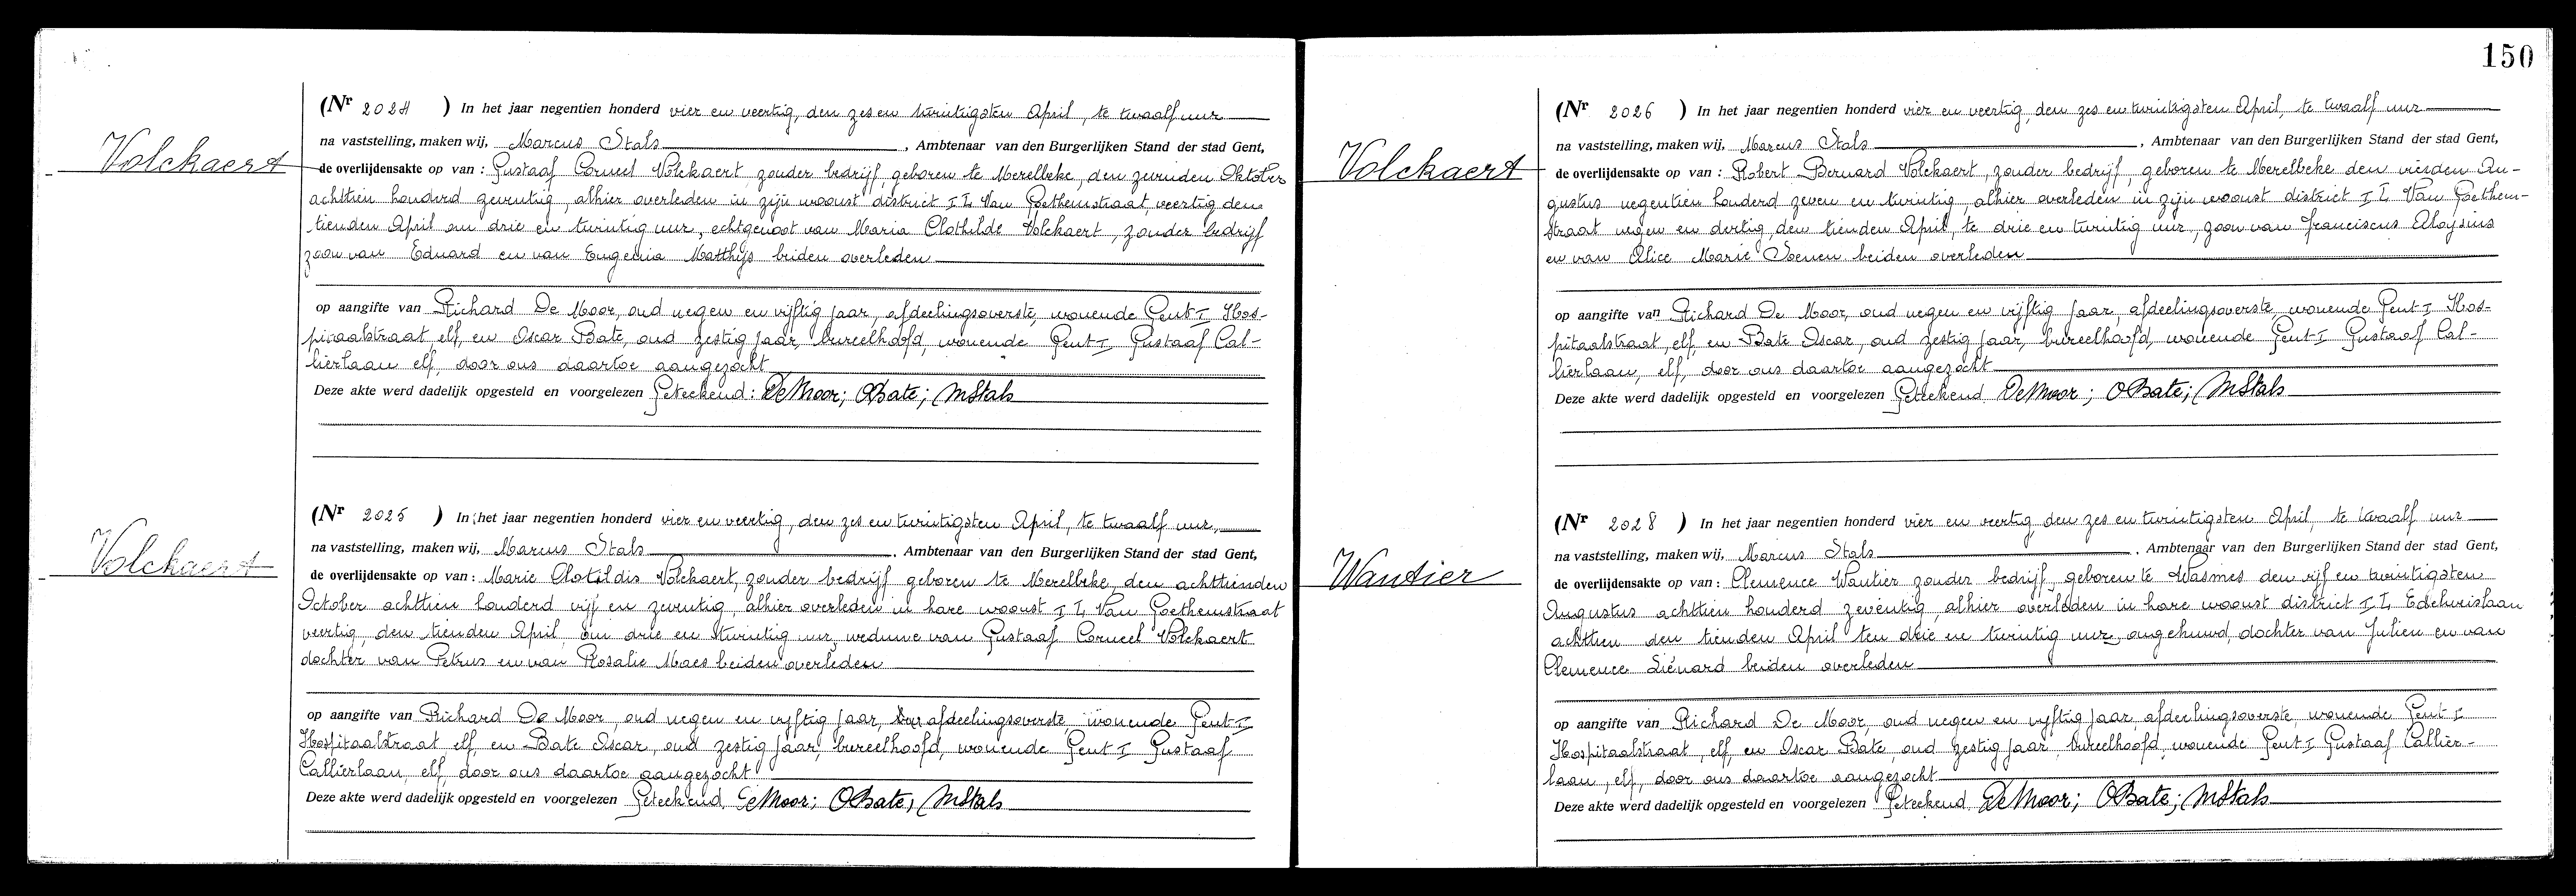 150
Volckaert
(Nr 2024 ) In het jaar negentien honderd vier en veertig, den zes en twintigsten April, te twaalf uur
na vaststelling, maken wij, Marcus Stals, Ambtenaar van den Burgerlijken Stand der stad Gent,
de overlijdensakte op van : Gustaaf Corneel Volckaert, zonder bedrijf, geboren te Merelbeke, den zevenden Oktober
achttien honderd zeventig, alhier overleden in zijn woonst district II Van Goethemstraat, veertig den
tienden April om drie en twintig uur, echtgenoot van Maria Clothilde Volckaert, zonder bedrijf
zoon van Eduard en van Eugenia Matthijs beiden overleden
op aangifte van Richard De Moor, oud negen en vijftig jaar, afdeelingsoverste, wonende Gent I Hos-
pitaalstraat, elf, en Oscar Bate, oud zestig jaar, bureelhoofd, wonende Gent I Gustaaf Cal-
lierlaan elf, door ons daartoe aangezocht
Deze akte werd dadelijk opgesteld en voorgelezen Geteekend : DeMoor; OBate; MStals
Volckaert
(Nr 2025 ) In het jaar negentien honderd vier en veertig, den zes en twintigsten April, te twaalf uur,
na vaststelling, maken wij, Marcus Stals, Ambtenaar van den Burgerlijken Stand der stad Gent,
de overlijdensakte op van : Marie Clotildis Volckaert, zonder bedrijf geboren te Merelbeke, den achttienden
October achttien honderd vijf en zeventig, alhier overleden in hare woonst II Van Goethemstraat
veertig, den tienden April om drie en twintig uur, weduwe van Gustaaf Corneel Volckaert
dochter van Petrus en van Rosalie Maes beiden overleden
op aangifte van Richard De Moor, oud negen en vijftig jaar, afdeelingsoverste, wonende Gent I
Hospitaalstraat, elf, en Bate Oscar, oud zestig jaar, bureelhoofd, wonende Gent I Gustaaf
Callierlaan, elf, door ons daartoe aangezocht
Deze akte werd dadelijk opgesteld en voorgelezen Geteekend DeMoor; OBate; MStals
Volckaert
(Nr 2026 ) In het jaar negentien honderd vier en veertig, den zes en twintigsten April, te twaalf uur
na vaststelling, maken wij, Marcus Stals, Ambtenaar van den Burgerlijken Stand der stad Gent,
de overlijdensakte op van : Robert Bernard Volckaert, zonder bedrijf, geboren te Merelbeke den vierden Au-
gustus negentien honderd zeven en twintig, alhier overleden in zijn woonst district II Van Goethem-
straat negen en dertig, den tienden April, te drie en twintig uur, zoon van Franciscus Aloysius
en van Alice Marie beiden overleden
op aangifte van Richard De Moor, oud negen en vijftig jaar, afdeelingsoverste, wonende Gent I Hos-
pitaalstraat, elf, en Bate Oscar, oud zestig jaar, bureelhoofd, wonende Gent I Gustaaf Cal-
lierlaan, elf, door ons daartoe aangezocht
Deze akte werd dadelijk opgesteld en voorgelezen Geteekend DeMoor; OBate; MStals
Wantier
(Nr 2028 ) In het jaar negentien honderd vier en veertig, den zes en twintigsten April, te twaalf uur
na vaststelling, maken wij, Marcus Stals, Ambtenaar van den Burgerlijken Stand der stad Gent,
de overlijdensakte op van : Clemence Wantier zonder bedrijf, geboren te Wasmes den vijf en twintigsten
Augustus achttien honderd zeventig, alhier overleden in hare woonst district II Edelweislaan
achttien den tienden April ten drie en twintig uur, ongehuwd, dochter van Julien en van
Clemence Liénard beiden overleden
op aangifte van Richard De Moor, oud negen en vijftig jaar, afdeelingsoverste, wonende Gent I
Hospitaalstraat, elf en Oscar Bate, oud zestig jaar, bureelhoofd, wonende Gent I Gustaaf Callier-
laan, elf, door ons daartoe aangezocht
Deze akte werd dadelijk opgesteld en voorgelezen Geteekend DeMoor; OBate; MStals